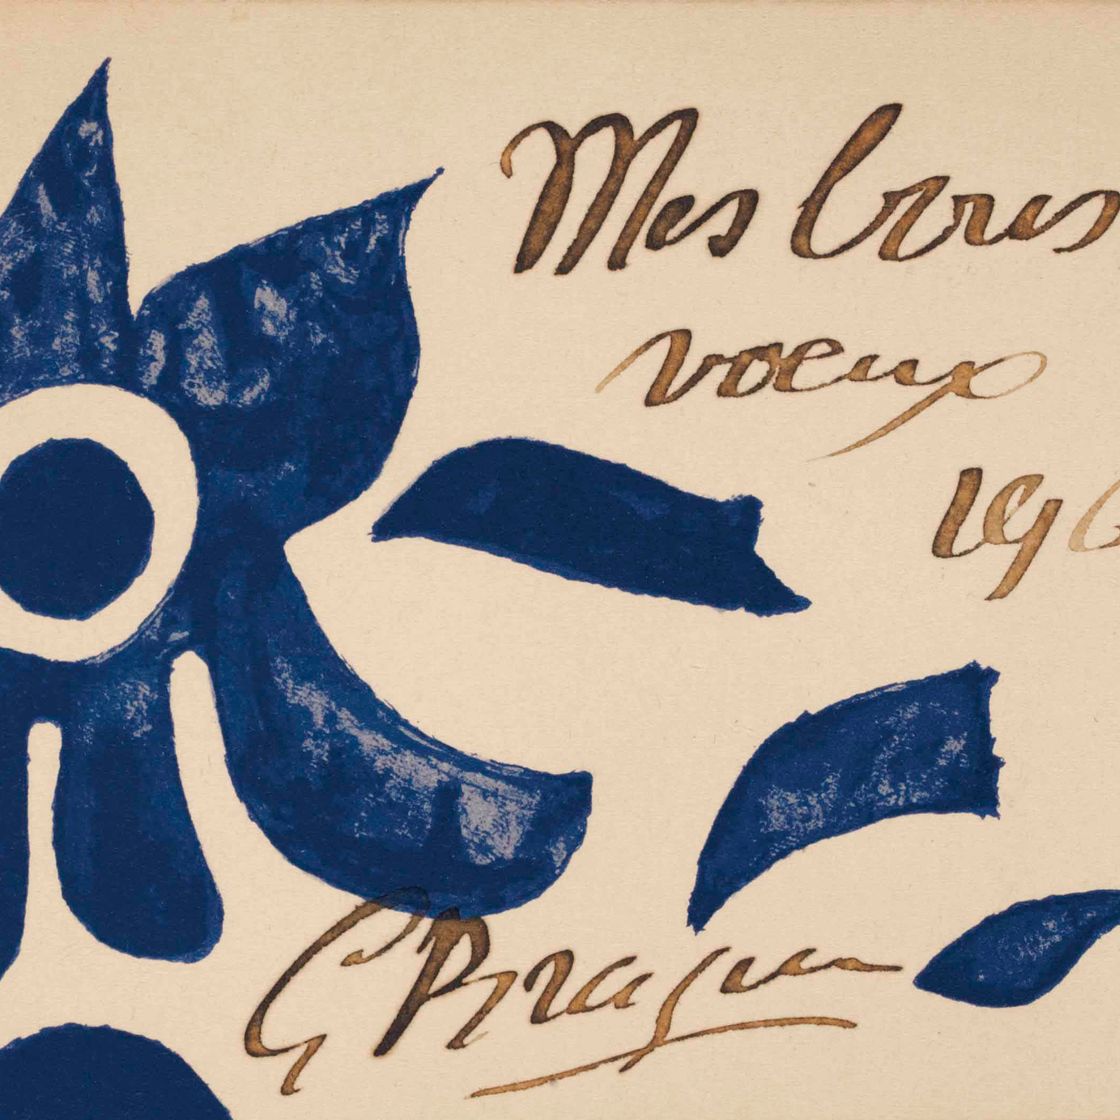 Mes bons
voeux
196
G Braque